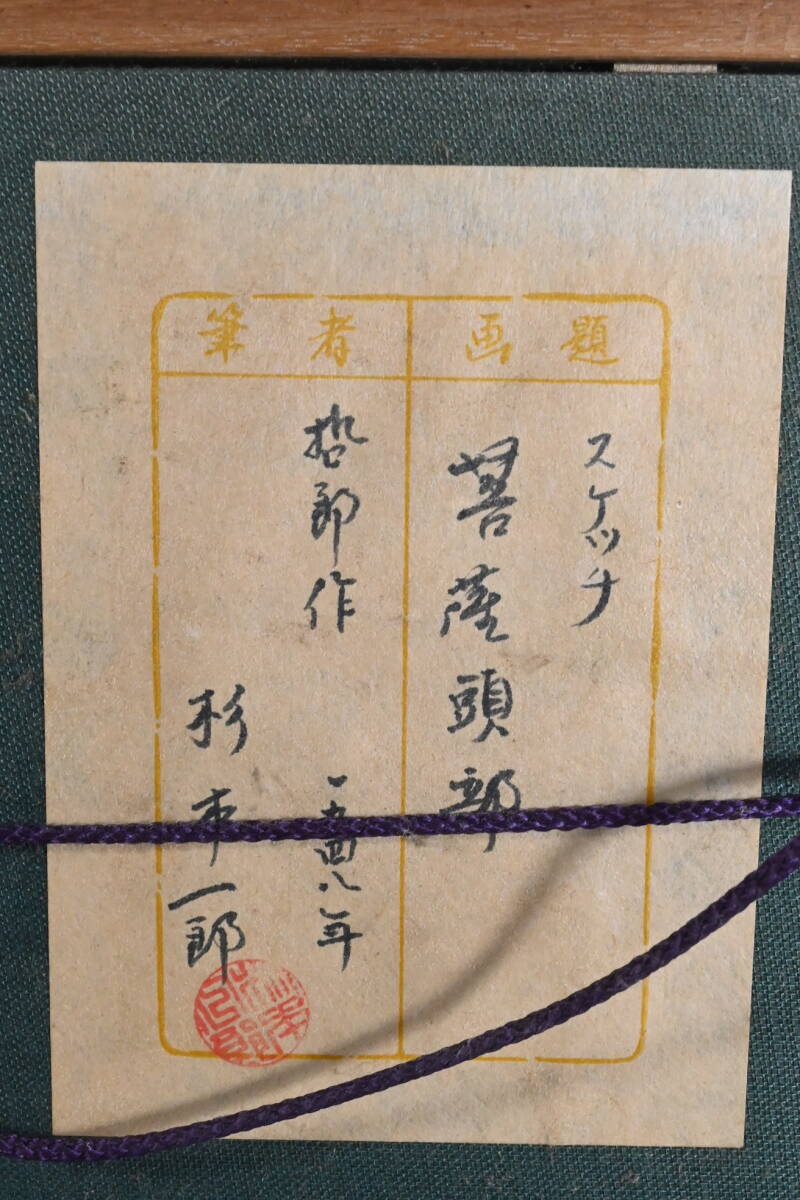 画題
スケッチ
菩薩頭部
筆者
哲郎作
四八年
杉本一郎